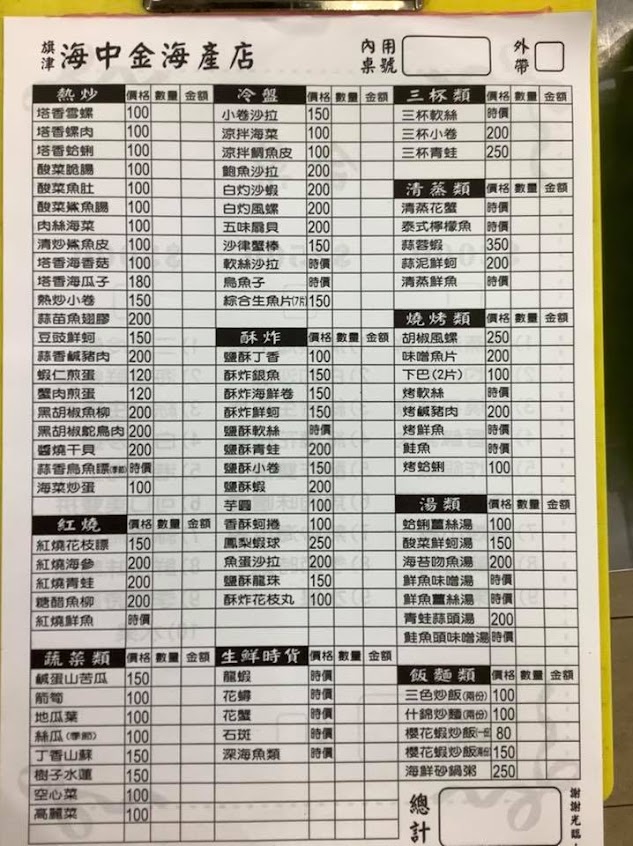 旗津 海中金海產店 內用桌號 外帶
熱炒 價格 數量 金額
塔香雪螺 100
塔香螺肉 100
塔香蛤蜊 100
酸菜脆腸 100
酸菜魚肚 100
酸菜鯊魚腸 100
肉絲海菜 100
清炒鯊魚皮 100
塔香海香菇 100
塔香海瓜子 180
熱炒小卷 150
蒜苗魚翅膠 200
豆豉鮮蚵 150
蒜香鹹豬肉 200
蝦仁煎蛋 120
蟹肉煎蛋 120
黑胡椒魚柳 200
黑胡椒鴕鳥肉 200
醬燒干貝 200
蒜香烏魚鰾(季節) 時價
海菜炒蛋 100
紅燒 價格 數量 金額
紅燒花枝鰾 150
紅燒海參 200
紅燒青蛙 200
糖醋魚柳 200
紅燒鮮魚 時價
蔬菜類 價格 數量 金額
鹹蛋山苦瓜 150
箭筍 100
地瓜葉 100
絲瓜(季節) 100
丁香山蘇 150
樹子水蓮 150
空心菜 100
高麗菜 100
冷盤 價格 數量 金額
小卷沙拉 150
涼拌海菜 100
涼拌鯛魚皮 100
鮑魚沙拉 200
白灼沙蝦 200
白灼風螺 200
五味扇貝 200
沙律蟹棒 150
軟絲沙拉 時價
烏魚子 時價
綜合生魚片(7片) 150
酥炸 價格 數量 金額
鹽酥丁香 100
酥炸銀魚 150
酥炸海鮮卷 150
酥炸鮮蚵 150
鹽酥軟絲 時價
鹽酥青蛙 200
鹽酥小卷 150
鹽酥蝦 200
芋圓 100
香酥蚵捲 100
鳳梨蝦球 250
魚蛋沙拉 200
鹽酥龍珠 150
酥炸花枝丸 100
生鮮時貨 價格 數量 金額
龍蝦 時價
花蟳 時價
花蟹 時價
石斑 時價
深海魚類 時價
三杯類 價格 數量 金額
三杯軟絲 時價
三杯小卷 200
三杯青蛙 250
清蒸類 價格 數量 金額
清蒸花蟹 時價
泰式檸檬魚 時價
蒜蓉蝦 350
蒜泥鮮蚵 200
清蒸鮮魚 時價
燒烤類 價格 數量 金額
胡椒風螺 250
味噌魚片 200
下巴(2片) 100
烤軟絲 時價
烤鹹豬肉 200
烤鮮魚 時價
鮭魚 時價
烤蛤蜊 100
湯類 價格 數量 金額
蛤蜊薑絲湯 100
酸菜鮮蚵湯 150
海苔吻魚湯 200
鮮魚味噌湯 時價
鮮魚薑絲湯 時價
青蛙蒜頭湯 200
鮭魚頭味噌湯 時價
飯麵類 價格 數量 金額
三色炒飯(兩份) 100
什錦炒麵(兩份) 100
櫻花蝦炒飯(一份) 80
櫻花蝦炒飯(兩份) 150
海鮮砂鍋粥 250
總計
謝謝光臨